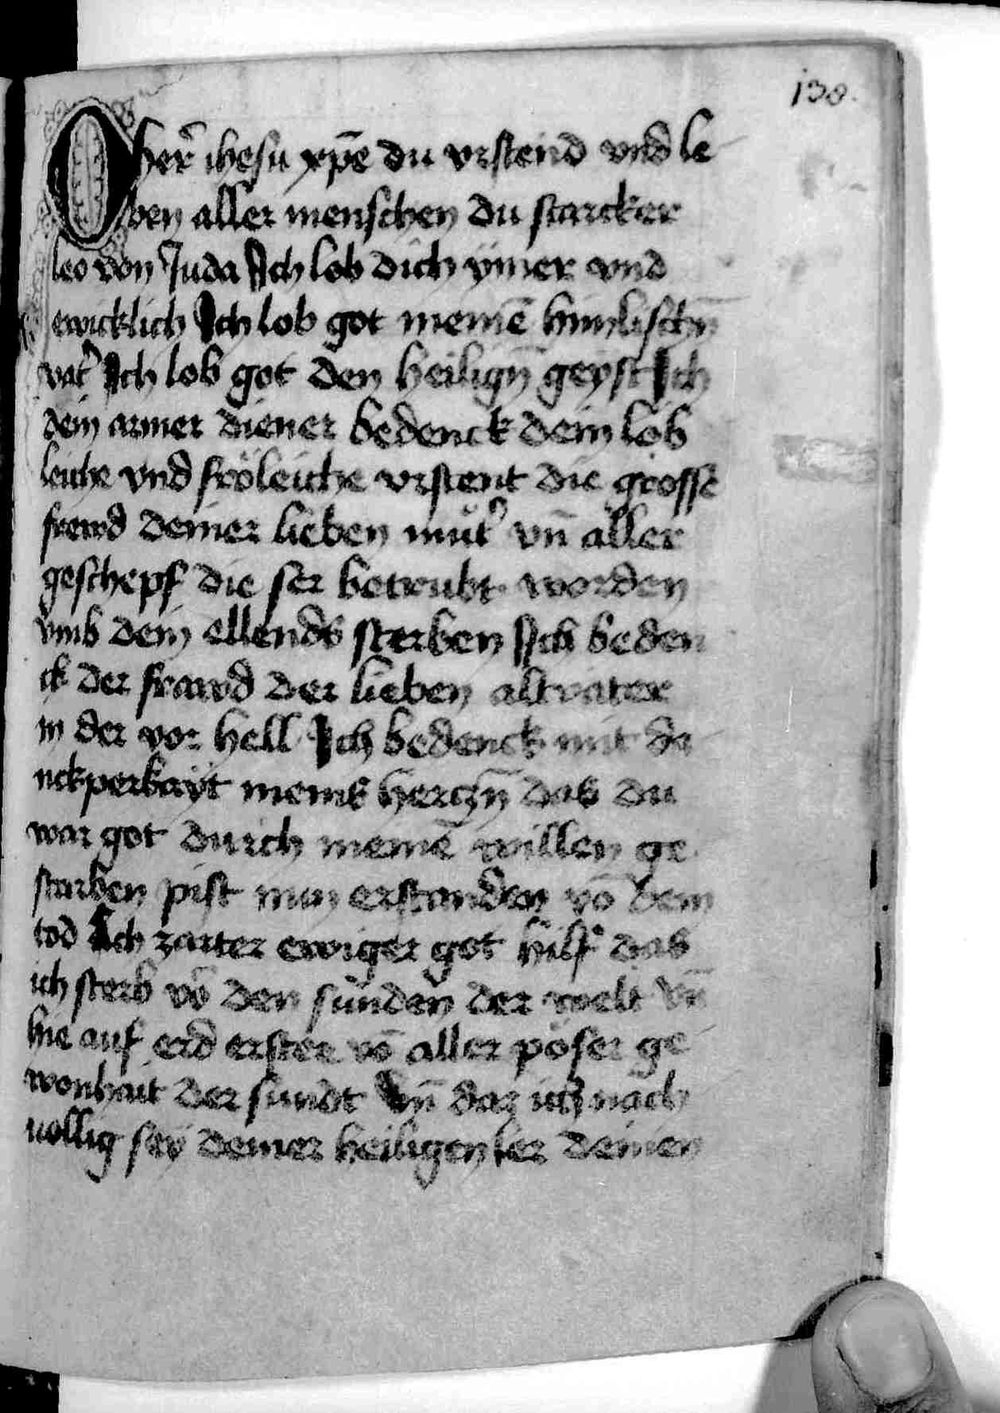 138.
O her̄ ihesu xp̄e du vrstend vnd le
ben aller menschen du starcker
leo von Juda Ich lob dich ymer vnd
ewicklich Ich lob got meinē himlischn̄
vat͛ Ich lob got den heilign̄ geyst Ich
dein armer diener bedenck dein lob
leiche vnd fröleiche vrstent die grosse
frewd deiner lieben mut͛ vn̄ aller
geschepf die ser betrubt worden
vmb dein ellends sterben Ich beden
ck der frawd der lieben altvater
in der vor hell Ich bedenck mit da
nckperkayt meins herczn̄ das du
war got durch meinē willen ge
storben pist nun erstanden vō dem
tod Ach zarter ewiger got hilf das
ich sterb vō den sunden der welt vn̄
hie auf erd erstee vō aller pöser ge
wonhait der sundt Vn̄ daz ich nach
vollig sey deiner heiligen ler deinen